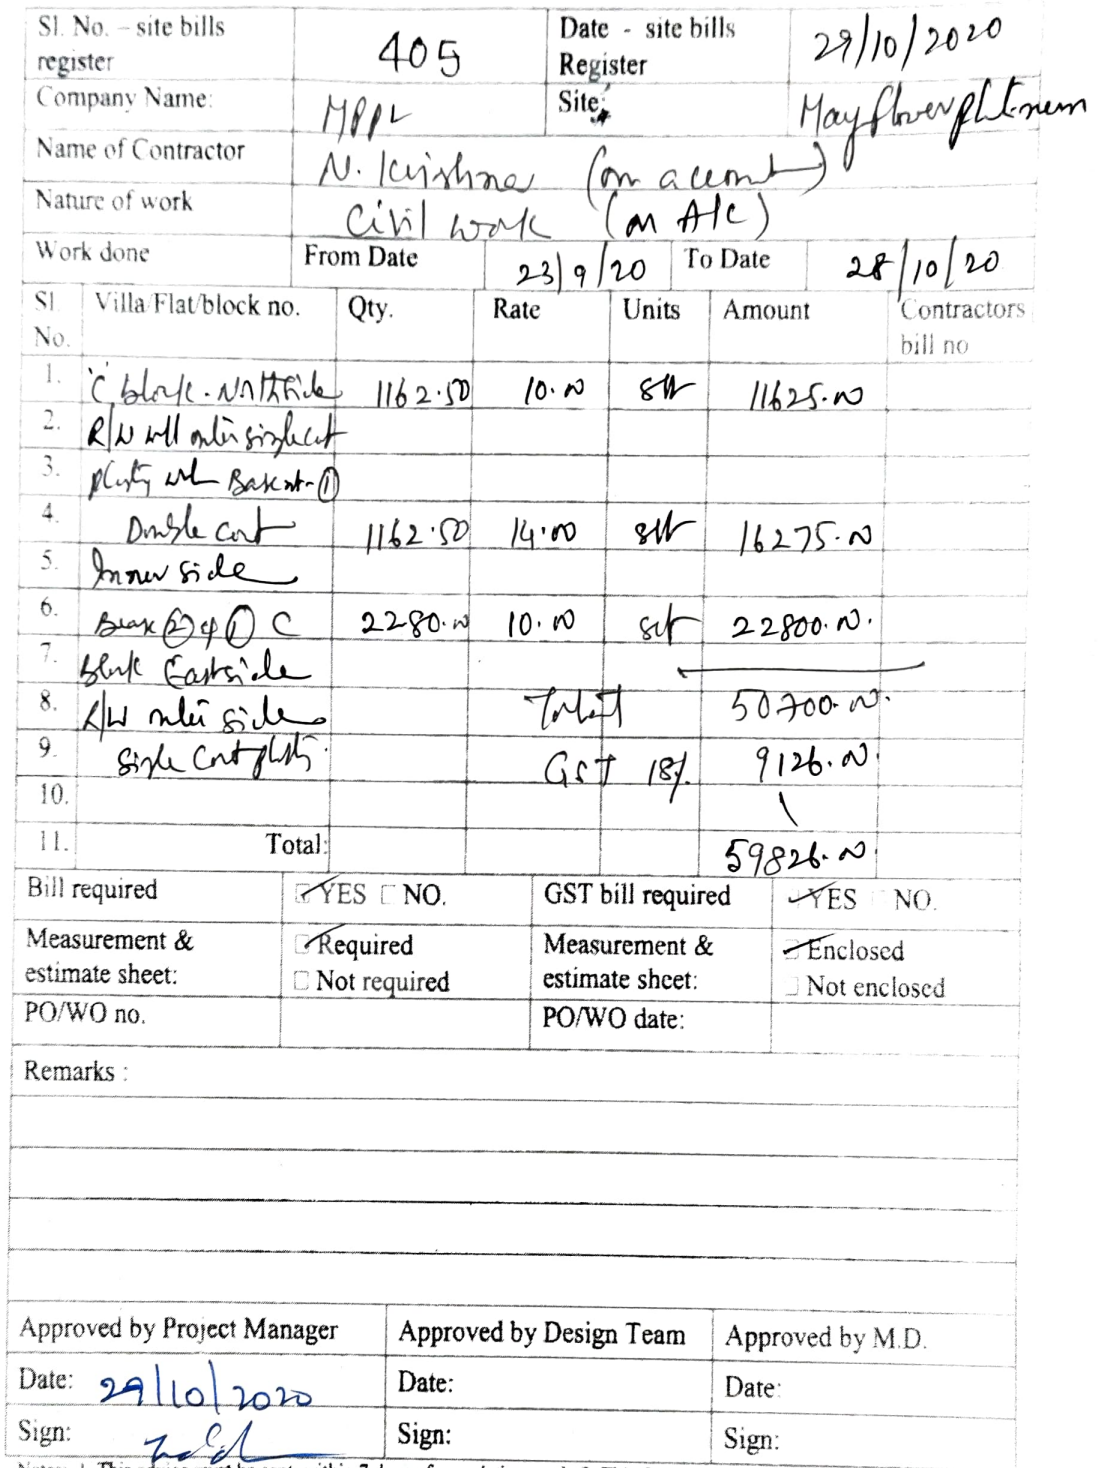 Sl. No. – site bills register 405 Date - site bills Register 29/10/2020
Company Name: MPPL Site: Mayflower platinum
Name of Contractor N. Krishna (on account)
Nature of work Civil work (on A/c)
Work done From Date 23/9/20 To Date 28/10/20
Sl. No. Villa/Flat/block no. Qty. Rate Units Amount Contractors bill no
1. 'C' block. Northside 1162.50 10.00 sft 11625.00
2. R/W wall outer single coat
3. Basement-①
4. Double coat 1162.50 14.00 sft 16275.00
5. Inner side
6. ② & ① C 2280.00 10.00 sft 22800.00.
7. Block Eastside
8. R/W outer side Total 50700.00.
9. Single coat GST 18% 9126.00.
10.
11. Total: 59826.00.
Bill required YES NO. GST bill required YES NO.
Measurement & estimate sheet: Required Not required Measurement & estimate sheet: Enclosed Not enclosed
PO/WO no. PO/WO date:
Remarks :
Approved by Project Manager Approved by Design Team Approved by M.D.
Date: 29/10/2020 Date: Date:
Sign: Sign: Sign: